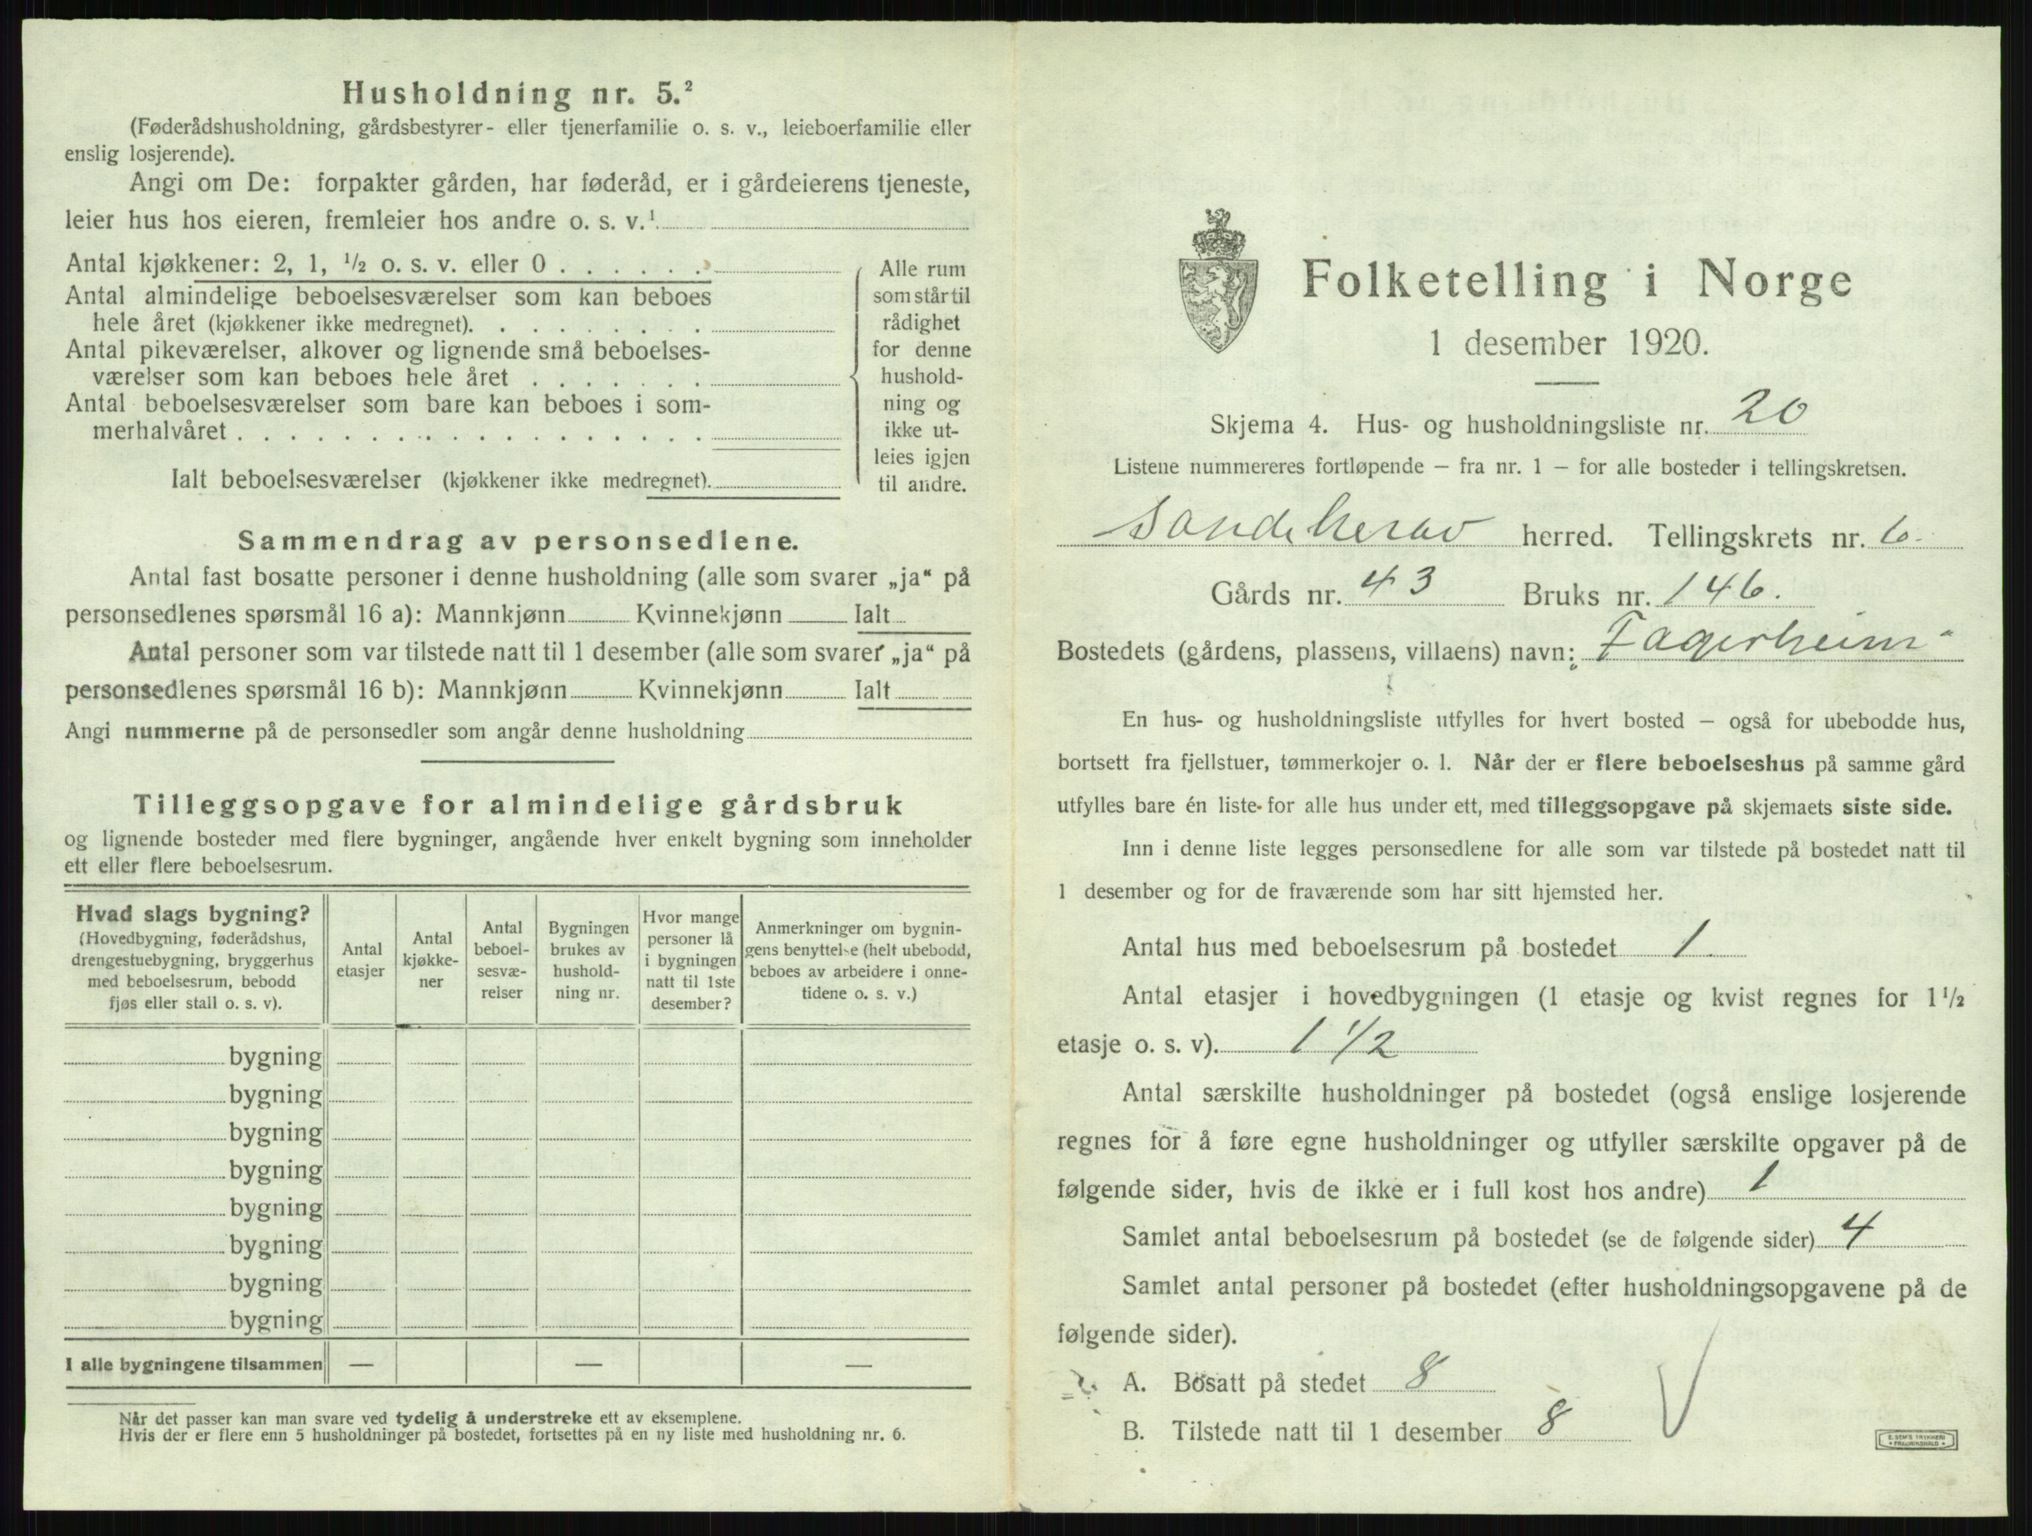 Husholdning nr. 5.²
(Føderådshusholdning, gårdsbestyrer- eller tjenerfamilie o. s. v., leieboerfamilie eller
enslig losjerende).
Angi om De: forpakter gården, har føderåd, er i gårdeierens tjeneste,
leier hus hos eieren, fremleier hos andre o. s. v.¹
Antal kjøkkener: 2, 1, ½ o. s. v. eller 0 . . . . . .
Antal almindelige beboelsesværelser som kan beboes
hele året (kjøkkener ikke medregnet). . . . . . . . .
Antal pikeværelser, alkover og lignende små beboelses-
værelser som kan beboes hele året . . . . . . .
Antal beboelsesværelser som bare kan beboes i som-
merhalvåret . . . . . . . . . . . . . . . . . .
Ialt beboelsesværelser (kjøkkener ikke medregnet).
Alle rum
som står til
rådighet
for denne
hushold-
ning og
ikke ut-
leies igjen
til andre.
Sammendrag av personsedlene.
Antal fast bosatte personer i denne husholdning (alle som svarer „ja“ på
personsedlenes spørsmål 16 a): Mannkjønn Kvinnekjønn Ialt
Antal personer som var tilstede natt til 1 desember (alle som svarer „ja“ på
personsedlenes spørsmål 16 b): Mannkjønn Kvinnekjønn Ialt
Angi nummerne på de personsedler som angår denne husholdning
Tilleggsopgave for almindelige gårdsbruk
og lignende bosteder med flere bygninger, angående hver enkelt bygning som inneholder
ett eller flere beboelsesrum.
Hvad slags bygning?
(Hovedbygning, føderådshus,
drengestuebygning, bryggerhus
med beboelsesrum, bebodd
fjøs eller stall o. s. v).
Antal
etasjer
Antal
kjøkke-
ner
Antal
beboel-
sesvæ-
relser
Bygningen
brukes av
hushold-
ning nr.
Hvor mange
personer lå
i bygningen
natt til 1ste
desember?
Anmerkninger om bygnin-
gens benyttelse (helt ubebodd,
beboes av arbeidere i onne-
tidene o. s. v.)
bygning
bygning
bygning
bygning
bygning
bygning
bygning
bygning
I alle bygningene tilsammen — — —
Når det passer kan man svare ved tydelig å understreke ett av eksemplene.
Hvis der er flere enn 5 husholdninger på bostedet, fortsettes på en ny liste med husholdning nr. 6.
Folketelling i Norge
1 desember 1920.
Skjema 4. Hus- og husholdningsliste nr. 20
Listene nummereres fortløpende – fra nr. 1 – for alle bosteder i tellingskretsen.
Sandeherav herred. Tellingskrets nr. 6.
Gårds nr. 43 Bruks nr. 146.
Bostedets (gårdens, plassens, villaens) navn: Fagerheim
En hus- og husholdningsliste utfylles for hvert bosted – også for ubebodde hus,
bortsett fra fjellstuer, tømmerkojer o. l. Når der er flere beboelseshus på samme gård
utfylles bare én liste for alle hus under ett, med tilleggsopgave på skjemaets siste side.
Inn i denne liste legges personsedlene for alle som var tilstede på bostedet natt til
1 desember og for de fraværende som har sitt hjemsted her.
Antal hus med beboelsesrum på bostedet 1
Antal etasjer i hovedbygningen (1 etasje og kvist regnes for 1½
etasje o. s. v). 1 1/2
Antal særskilte husholdninger på bostedet (også enslige losjerende
regnes for å føre egne husholdninger og utfyller særskilte opgaver på de
følgende sider, hvis de ikke er i full kost hos andre) 1
Samlet antal beboelsesrum på bostedet (se de følgende sider) 4
Samlet antal personer på bostedet (efter husholdningsopgavene på de
følgende sider).
A. Bosatt på stedet 8
B. Tilstede natt til 1 desember 8
E. SEM'S TRYKKERI
FREDRIKSHALD